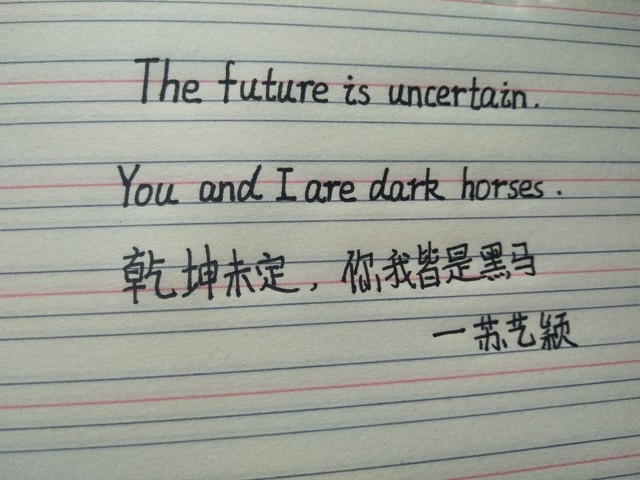 The future is uncertain.
You and I are dark horses.
乾坤未定，你我皆是黑马
—苏艺颖